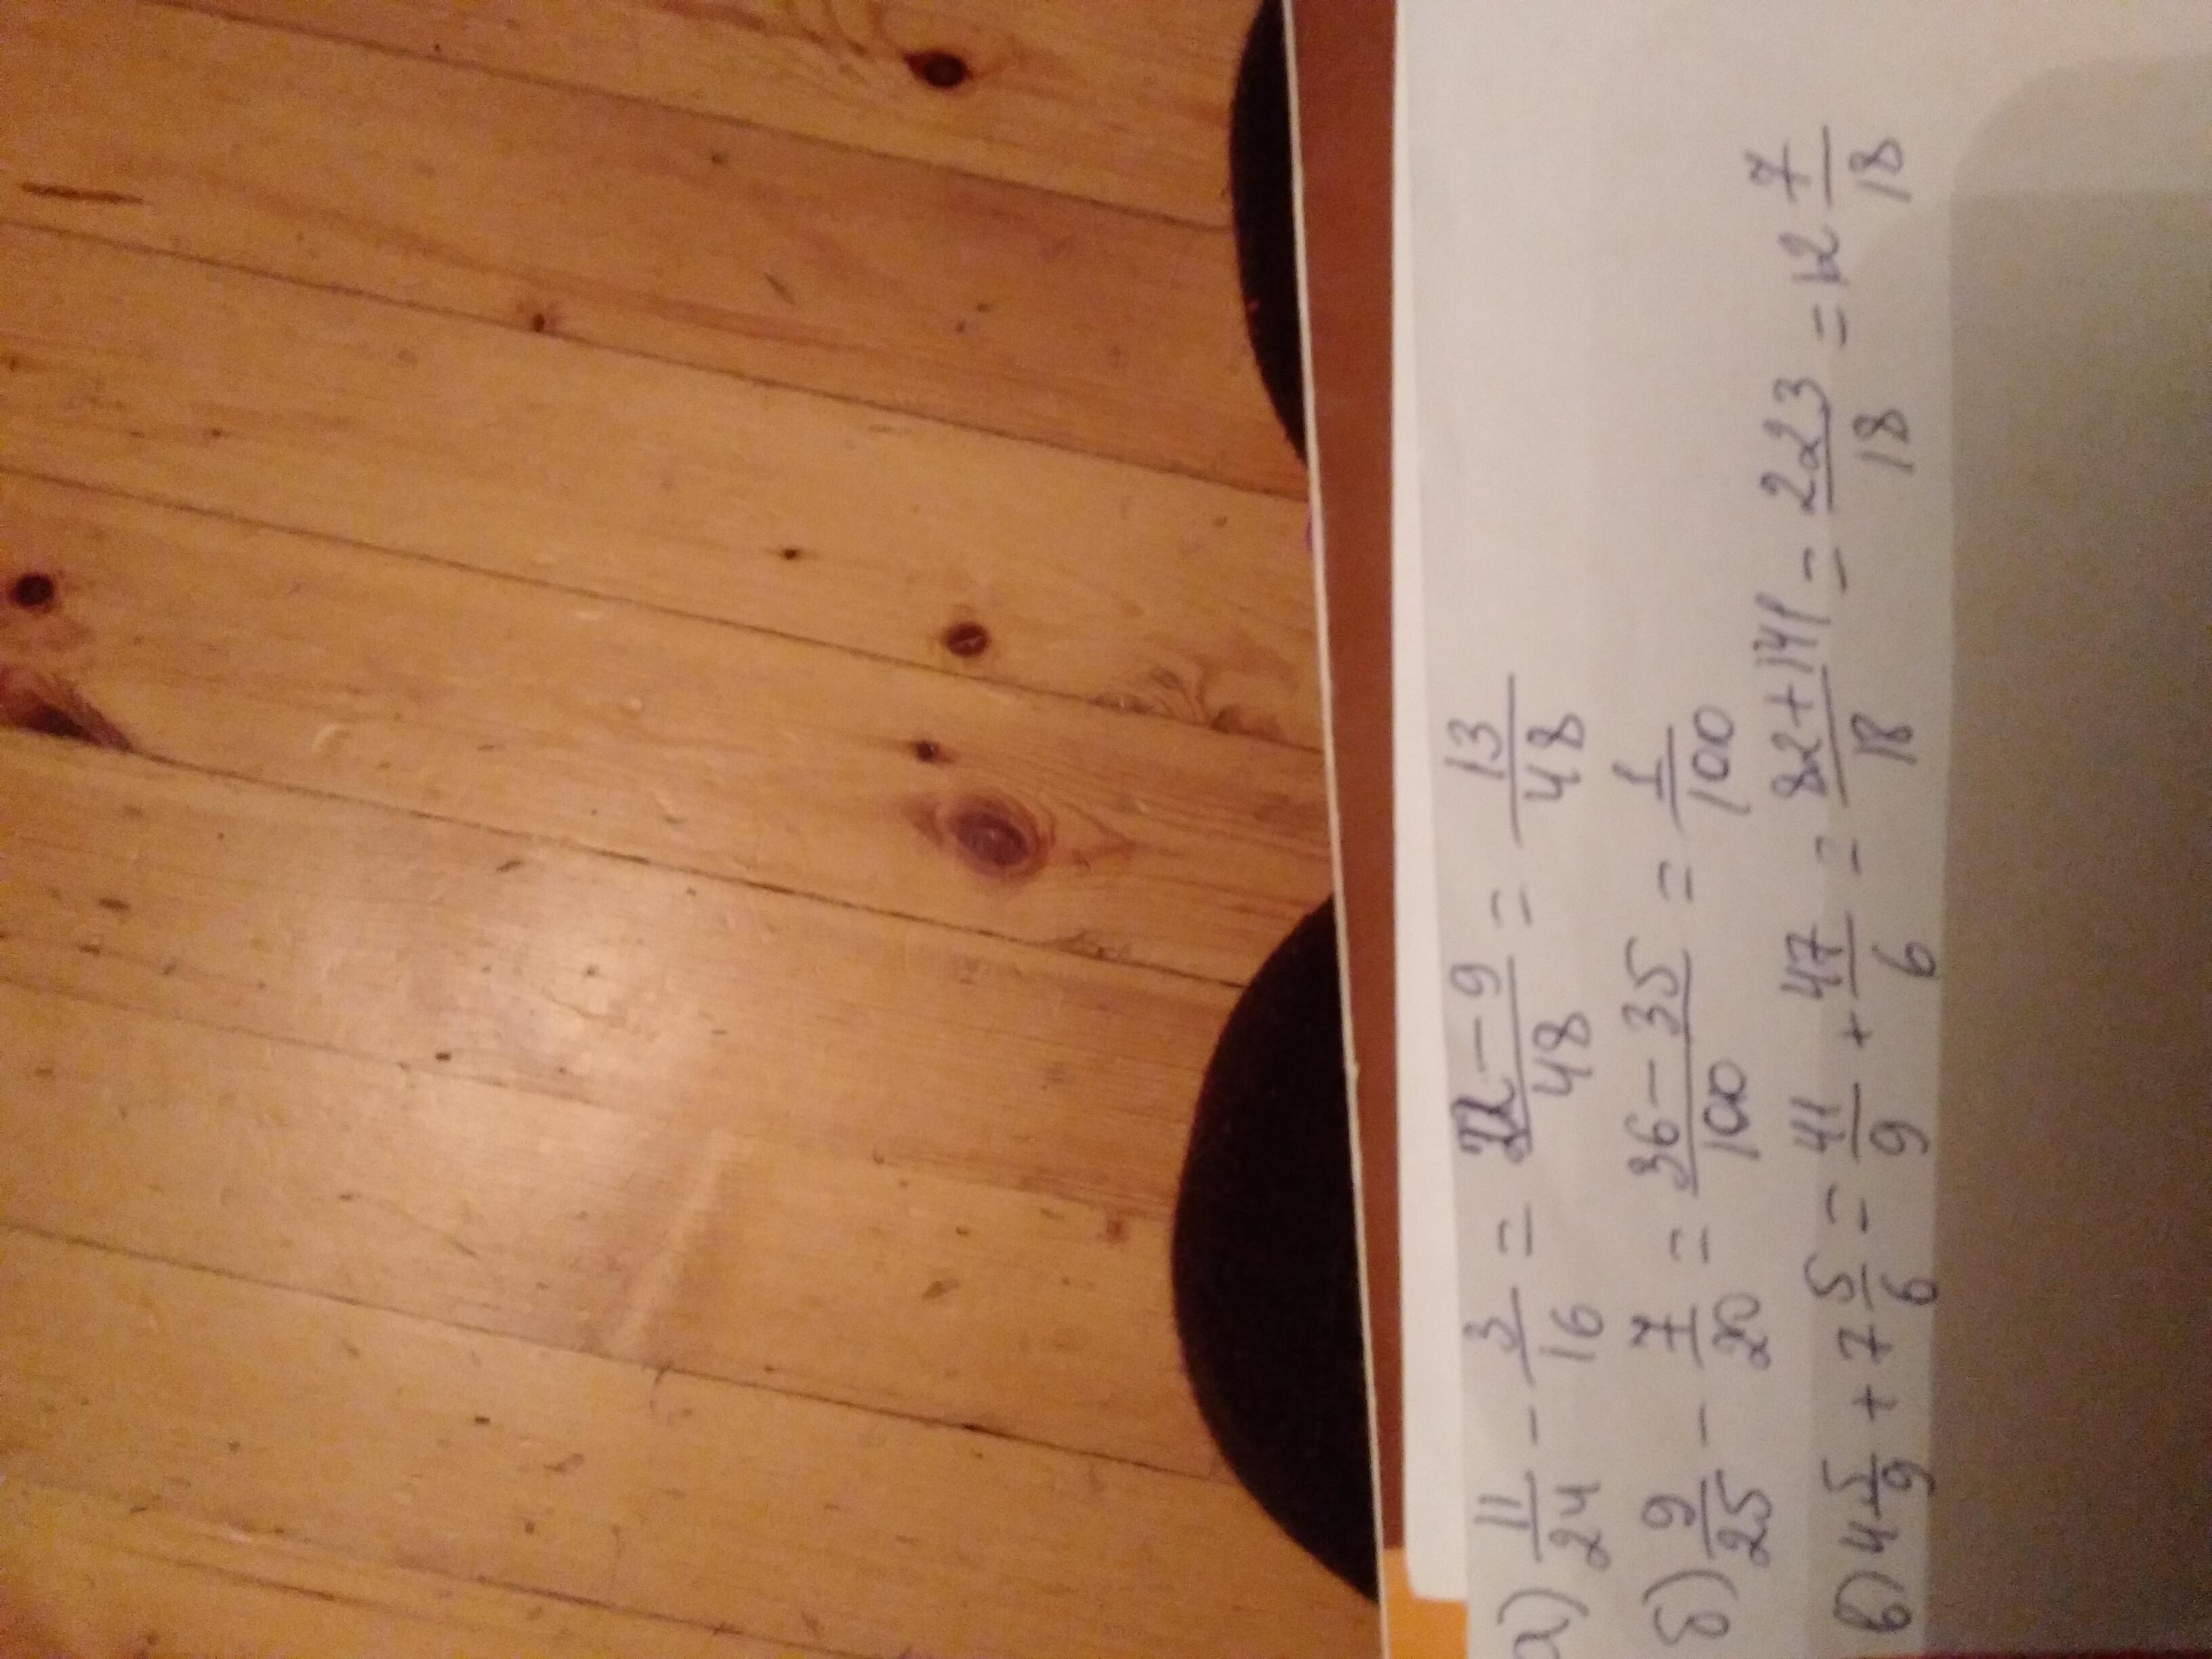 а) 11/24 - 3/16 = 22-9/48 = 13/48
б) 9/25 - 7/20 = 36-35/100 = 1/100
в) 4 5/9 + 7 5/6 = 41/9 + 47/6 = 82+141/18 = 223/18 = 12 7/18